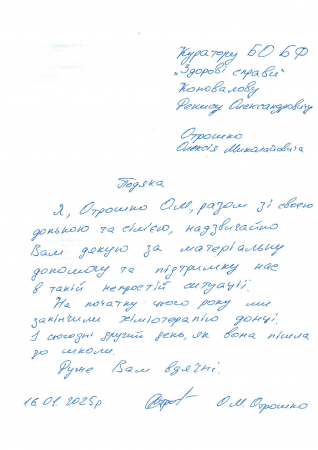 Куратору БО БФ
„Здорові справи"
Коновалову
Денису Олександровичу
Отрошко
Олексія Миколайовича
Подяка
Я, Отрошко О.М., разом зі своєю
донькою та сім'єю, надзвичайно
Вам дякую за матеріальну
допомогу та підтримку нас
в такій непростій ситуації.
На початку цього року ми
закінчили хіміотерапію донці.
І сьогодні другий день, як вона пішла
до школи.
Дуже Вам вдячні.
16.01.2025р О.М. Отрошко